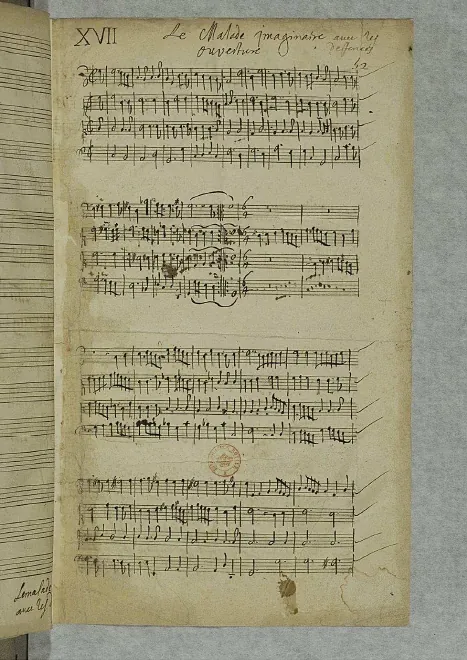 XVII
Le Malade imaginaire avec les
deffences
ouverture
52
Lemalade
avec les